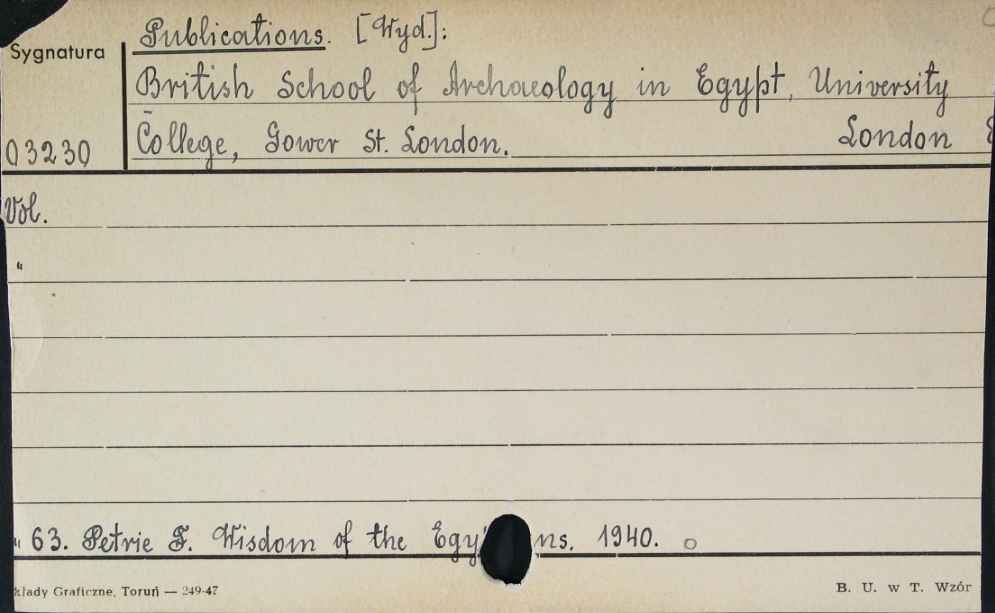 Publications. [Wyd.]:
Sygnatura
British School of Archaeology in Egypt, University
03230 College, Gower St. London. London
Vol.
"
" 63. Petrie F. Wisdom of the Egy ns. 1940. o
kłady Graficzne, Toruń — 249-47 B. U. w T. Wzór